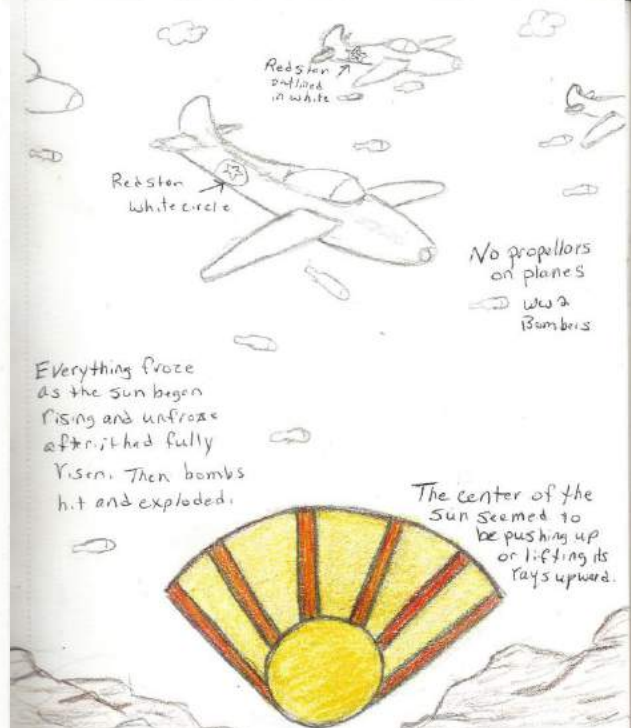 Red star
outlined
in white
Red star
white circle
No propellors
on planes
WW2
Bombers
Everything froze
as the sun began
rising and unfroze
after it had fully
risen. Then bombs
hit and exploded.
The center of the
sun seemed to
be pushing up
or lifting its
rays upward.